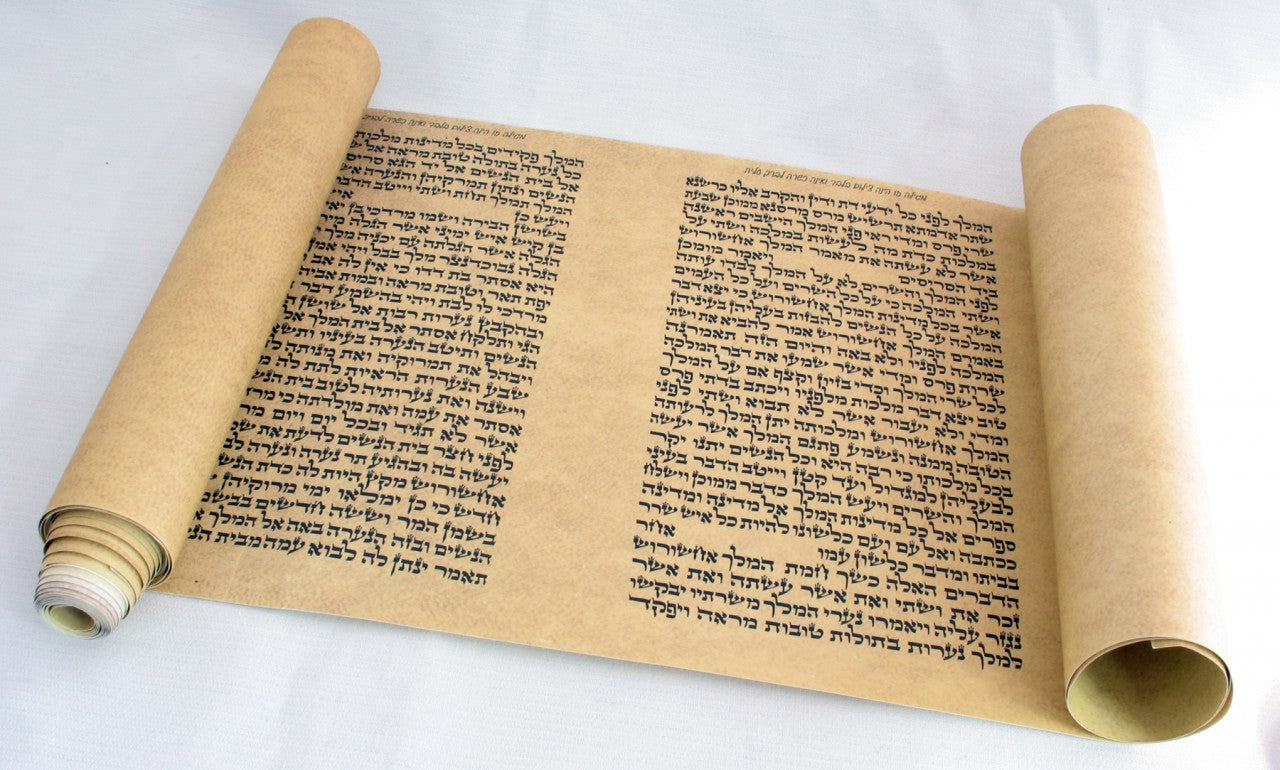 מגילה זו הינה צילום בלבד ואינה כשרה לברך עליה
המלך לפני כל ידעי דת ודין והקרב אליו כרשנא
שתר אדמתא תרשיש מרס מרסנא ממוכן שבעת
שרי פרס ומדי ראי פני המלך הישבים ראשנה
במלכות כדת מה לעשות במלכה ושתי על
אשר לא עשתה את מאמר המלך אחשורוש
ביד הסריסים ויאמר מומכן
לפני המלך והשרים לא על המלך לבדו עותה
ושתי המלכה כי על כל השרים ועל כל העמים
אשר בכל מדינות המלך אחשורוש כי יצא דבר
המלכה על כל הנשים להבזות בעליהן בעיניהן
באמרם המלך אחשורוש אמר להביא את ושתי
המלכה לפניו ולא באה והיום הזה תאמרנה
שרות פרס ומדי אשר שמעו את דבר המלכה
לכל שרי המלך וכדי בזיון וקצף אם על המלך
טוב יצא דבר מלכות מלפניו ויכתב בדתי פרס
ומדי ולא יעבור אשר לא תבוא ושתי לפני
המלך אחשורוש ומלכותה יתן המלך לרעותה
הטובה ממנה ונשמע פתגם המלך אשר יעשה
בכל מלכותו כי רבה היא וכל הנשים יתנו יקר
לבעליהן למגדול ועד קטן וייטב הדבר בעיני
המלך והשרים ויעש המלך כדבר ממוכן וישלח
ספרים אל כל מדינות המלך אל מדינה ומדינה
ככתבה ואל עם ועם כלשונו להיות כל איש שרר
בביתו ומדבר כלשון עמו אחר
הדברים האלה כשך חמת המלך אחשורוש
זכר את ושתי ואת אשר עשתה ואת אשר
נגזר עליה ויאמרו נערי המלך משרתיו יבקשו
למלך נערות בתולות טובות מראה ויפקד
מגילה זו הינה צילום בלבד ואינה כשרה לברך
המלך פקידים בכל מדינות מלכות
כל נערה בתולה טובת מראה אל
אל בית הנשים אל יד הגא סריס
הנשים ונתון תמרקיהן והנערה
המלך תמלך תחת ושתי וייטב הדבר
ויעש כן איש
בשושן הבירה ושמו מרדכי בן
בן קיש איש ימיני אשר הגלה
הגלה אשר הגלתה עם יכניה מלך
הגלה נבוכדנצר מלך בבל ויהי
היא אסתר בת דדו כי אין לה אב
יפת תאר וטובת מראה ובמות אביה
מרדכי לו לבת ויהי בהשמע דבר
ובהקבץ נערות רבות אל שושן
הגי ותלקח אסתר אל בית המלך
הנשים ותיטב הנערה בעיניו
ויבהל את תמרוקיה ואת מנותה
שבע הנערות הראיות לתת לה
וישנה ואת נערותיה לטוב בית
אסתר את עמה ואת מולדתה כי
אשר לא תגיד ובכל יום ויום
לפני חצר בית הנשים לדעת את
יעשה בה ובהגיע תר נערה ונערה
אחשורוש מקץ היות לה כדת
חדש כי כן ימלאו ימי מרוקיהן
בשמן המר וששה חדשים
הנשים ובזה הנערה באה אל המלך
תאמר ינתן לה לבוא עמה מבית